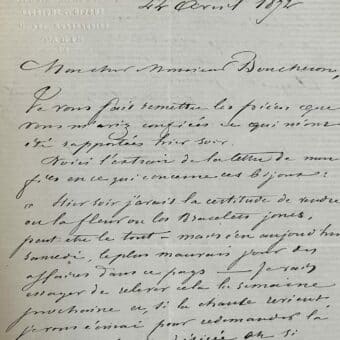 Avril 1872
Mon cher Monsieur Boucheron,
Je vous fais remettre les pièces que
vous m'aviez confiées et qui m'ont
été rapportées hier soir.
Voici l'extrait de la lettre de mon
fils en ce qui concerne ces bijoux:
" Hier soir j'avais la certitude de vendre
ou la fleur ou les Bracelets jones,
peut être le tout mais aujourd'hui
samedi, le plus mauvais jour des
affaires dans ce pays — Je vais
essayer de relever cela la semaine
prochaine et, si la chance revient,
je vous écrirai pour redemander la
si